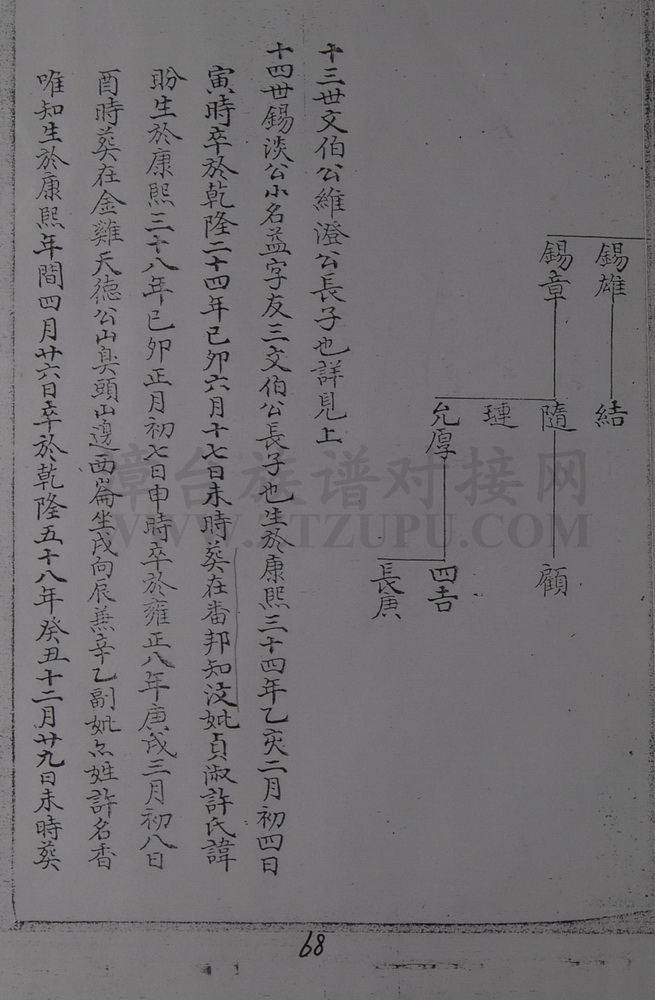 錫雄
結
錫章
隨
顧
璉
允厚
四吉
長庚
十三世文伯公維澄公長子也詳見上
十四世錫淡公小名益字友三文伯公長子也生於康熙三十四年乙亥二月初四日
寅時卒於乾隆二十四年己卯六月十七日未時葬在番邦知汶妣貞淑許氏諱
盼生於康熙三十八年己卯正月初七日申時卒於雍正八年庚戌三月初八日
酉時葬在金雞天德公山與頭山邊西崙坐戌向辰兼辛乙副妣亦姓許名香
唯知生於康熙年間四月廿六日卒於乾隆五十八年癸丑十二月廿九日未時葬
漳台族谱对接网
WWW.ZTZUPU.COM
68